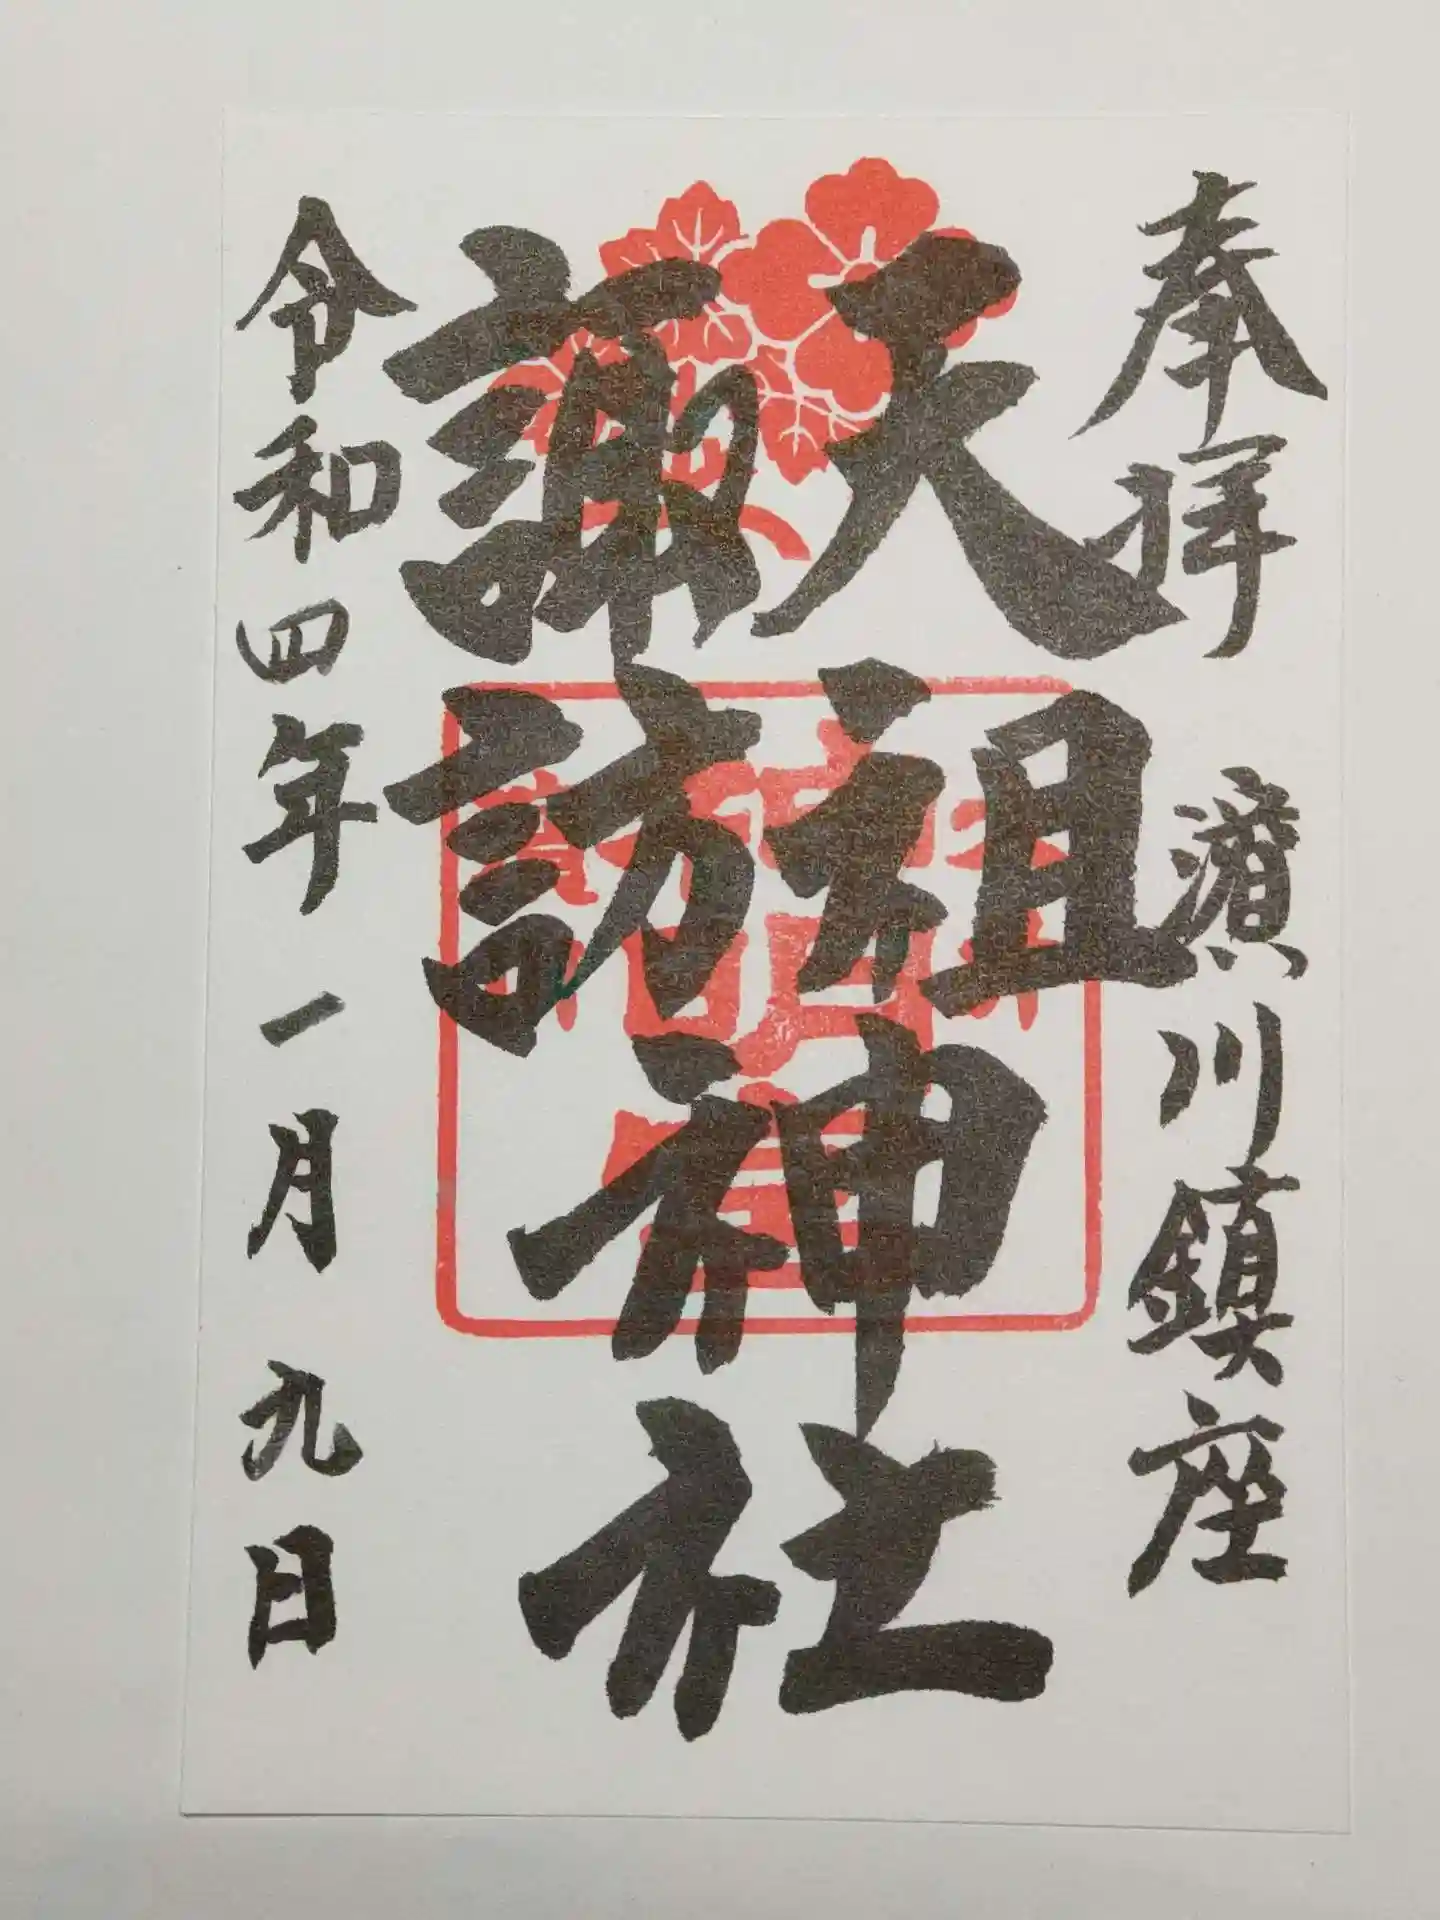 奉拝 濵川鎮座
天祖
諏訪
神社
令和四年一月九日